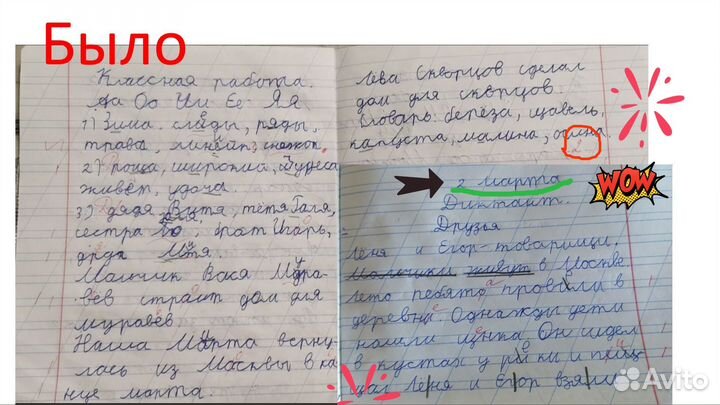 Было
Классная работа.
Аа Оо Ии Ее Яя
1) Зима. следы, ряды,
трава, линейк, снежок.
2) роща, широкий, чудеса
живёт, удача.
3) дядя Витя, тётя Галя,
сестра брат Игорь,
дядя Митя.
Мальчик Вася Мура-
вев строит дом для
муравёв
Наша Марта верну-
лась из Москвы в ка
нце марта.
Лёва Скворцов сделал
дом для скворцов.
Словарь: берёза, щавель,
капуста, малина, осина.
2
2 марта
Диктант.
Друзья
Лёня и Егор-товарищи.
Мальчики живут в Москве
Лето ребята провили в
деревни. Однажды дети
нашли щинка Он сидел
в кустах у реки и пищ
щал Лёня и Егор взяли
WOW
Avito